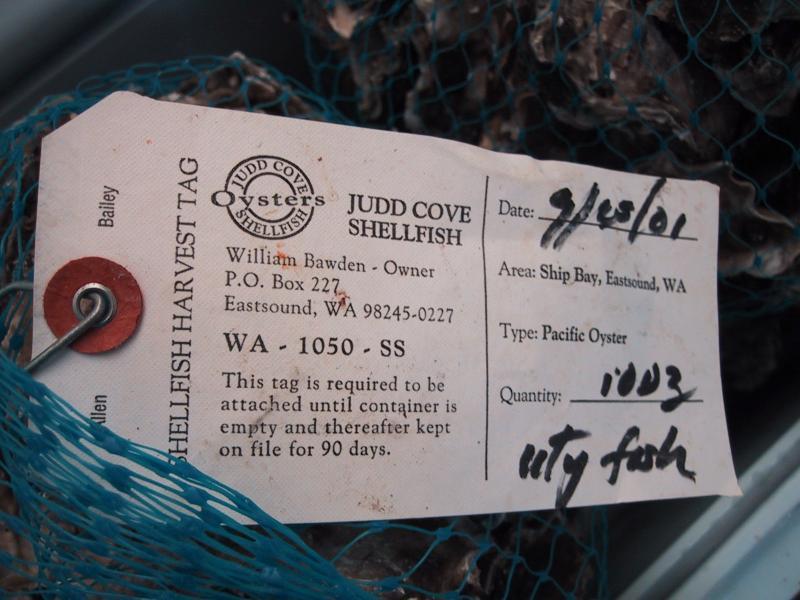 Bailey
Allen
SHELLFISH HARVEST TAG
JUDD COVE
Oysters
SHELLFISH
JUDD COVE
SHELLFISH
William Bawden - Owner
P.O. Box 227
Eastsound, WA 98245-0227
WA - 1050 - SS
This tag is required to be
attached until container is
empty and thereafter kept
on file for 90 days.
Date:
Area: Ship Bay, Eastsound, WA
Type: Pacific Oyster
Quantity:
fish